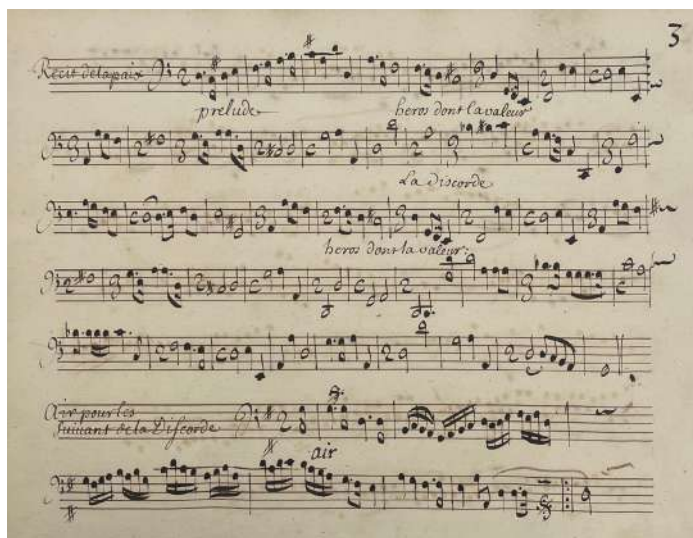 3
Récit de la paix
prelude heros dont la valeur
La discorde
heros dont la valeur:
Air pour les
Suivant de la Discorde
air